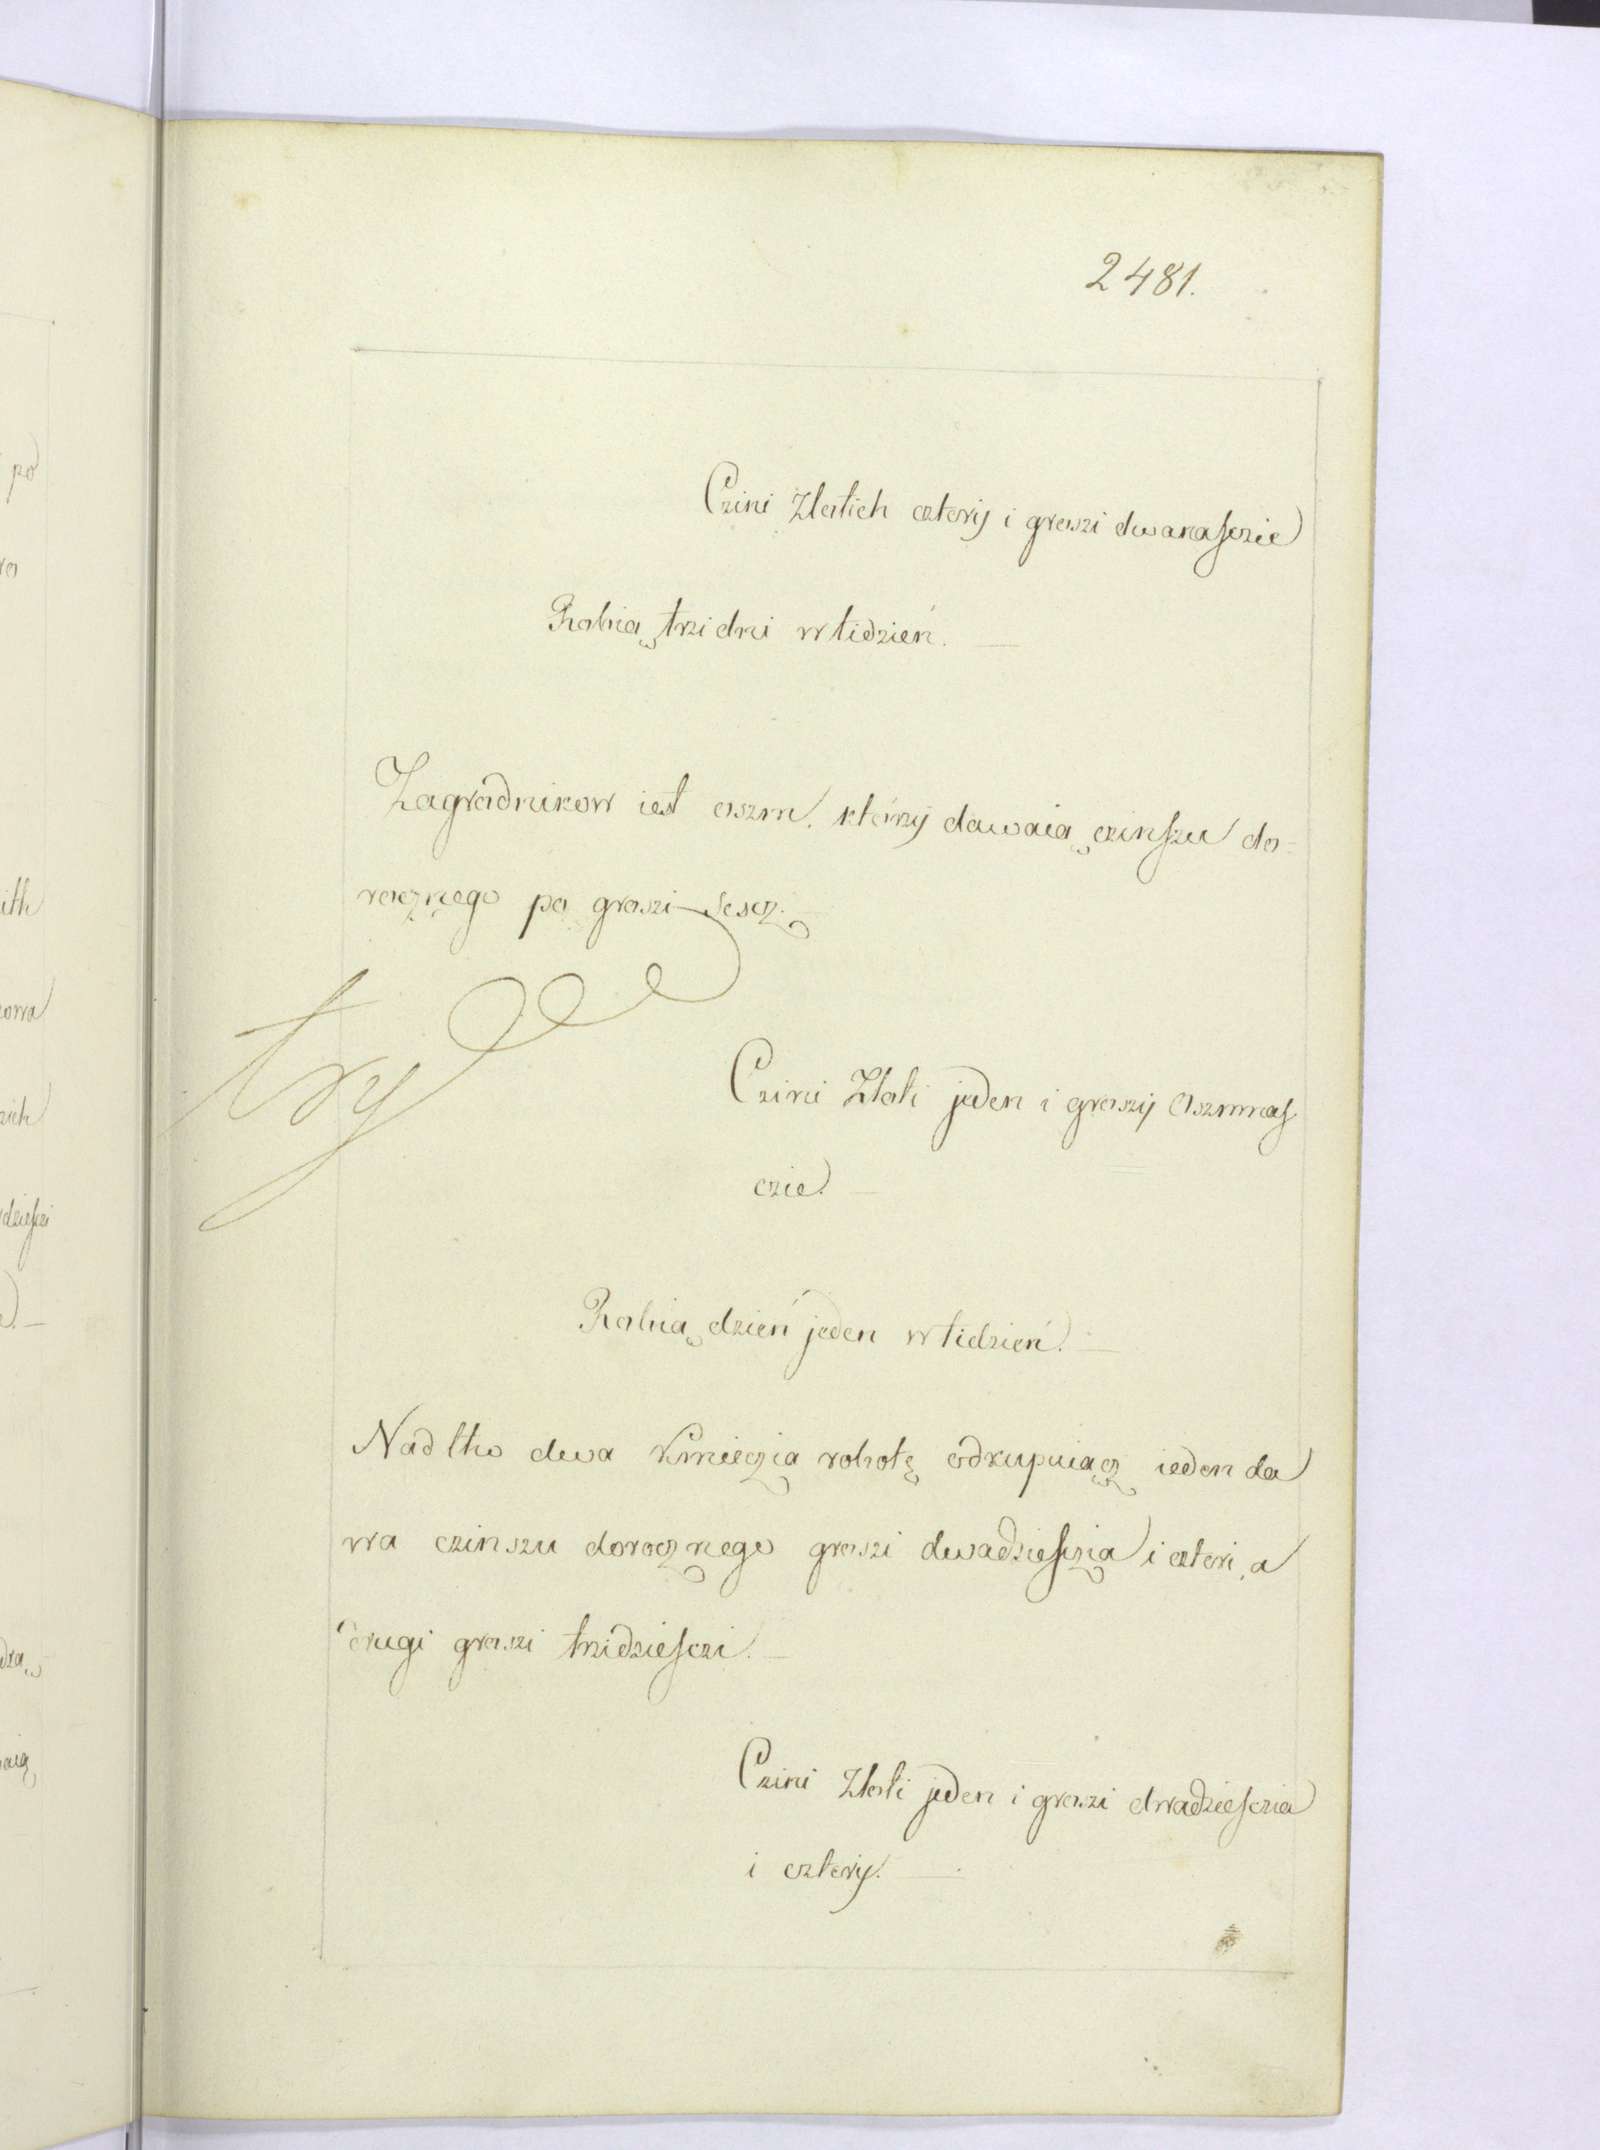 2481.
Czini Zlotich cztery i groszi dwanasczie
Robią trzi dni w tidzień.
Zagrodnikow iest oszm. którzy dawaią czinszu do-
rocznego po groszi sescz.
Czini Zloti jeden i groszy Oszmnas
czie.
Robią dzień jeden w tidzień.
Nad tho dwa Kmieczia robotę odkupuiącz ieden da
wa czinszu dorocznego groszi dwadziesczia i czteri, a
drugi groszi trzidziesczi.
Czini Zloti jeden i groszi dwadziesczia
i cztery.